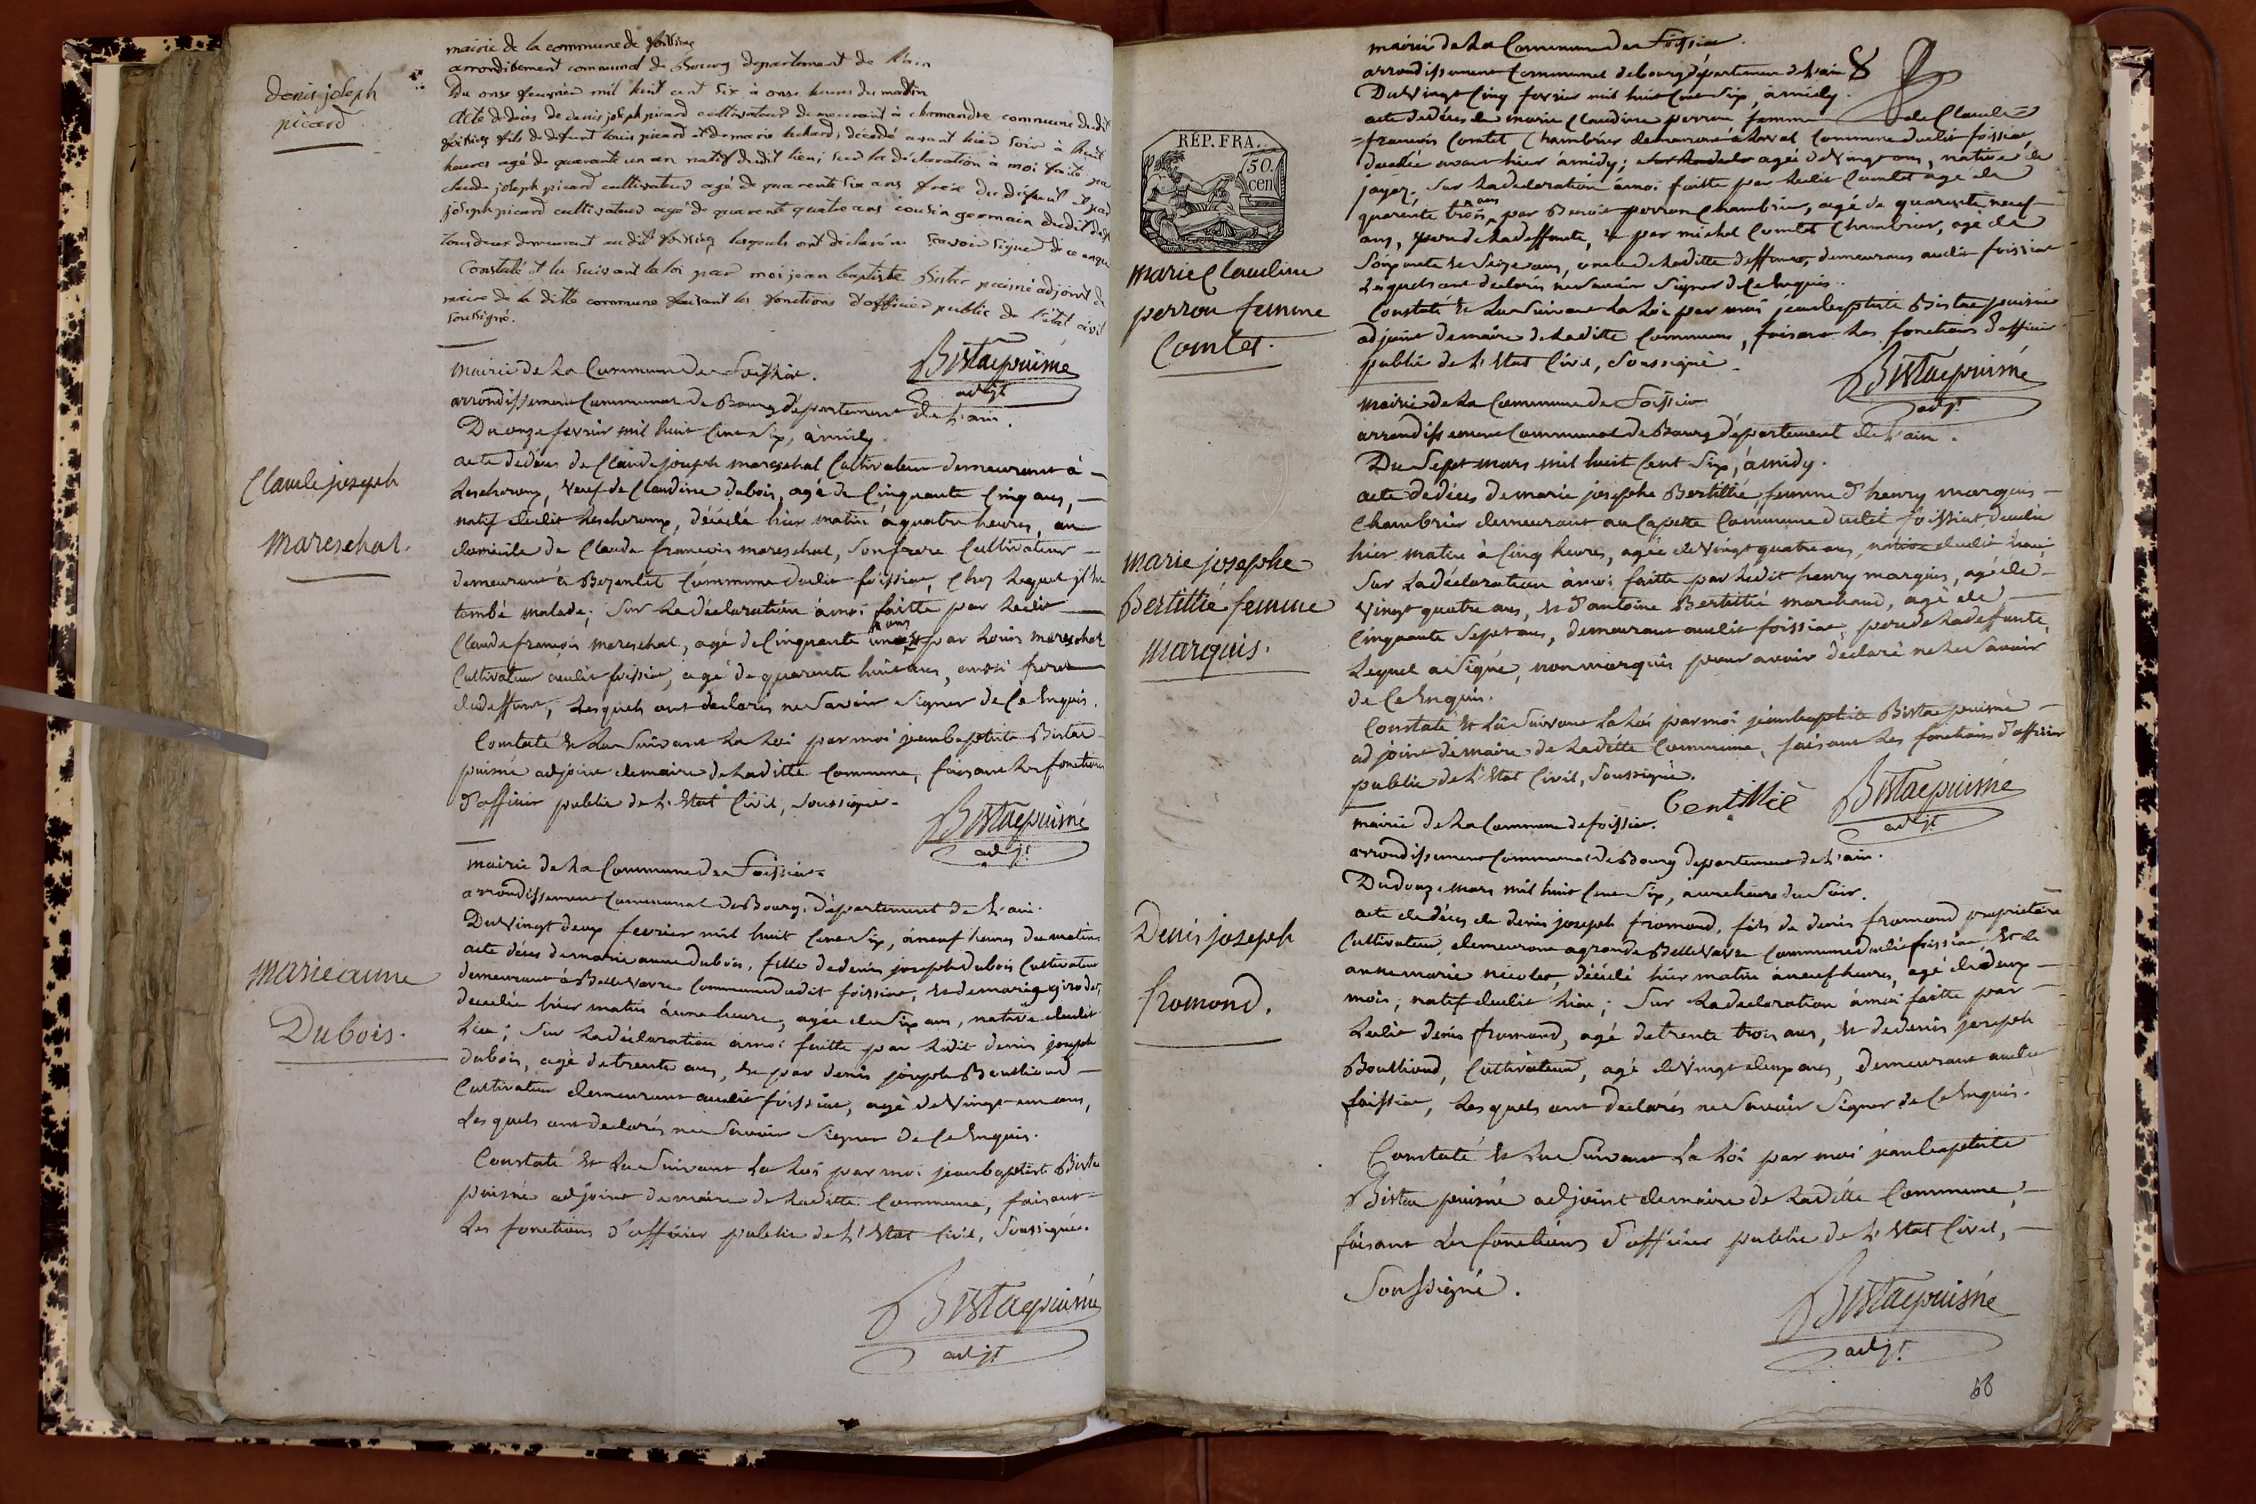 denis joseph
picard
mairie de la commune de foissiat
arrondisement communal de Bourg departement de l'ain
Du onze fevrier mil huit cent six à onze heures du matin
acte de deces de denis joseph picard cultivateur demeurant à chemandre commune dudit
foissiat fils de defunt louis picard et de marie , décédé avant hier soir à huit
heures agé de quarante un an natif dudit lieu; sur la déclaration à moi faite par
claude joseph picard cultivateur agé de quarente six ans frere du défunt et par
joseph picard cultivateur agé de quarente quatre ans cousin germain dudit
tous deux demeurant audit foissiat lesquels ont déclaré ne savoir signer de ce enquis
Constaté et lu suivant la loi par moi jean baptiste Bistac puisné adjoint de
maire de la ditte commune faisant les fonctions d'officier public de l'état civil
soussigné.
Bistacpuisné
adjt
Claude joseph
mareschal.
mairie de La Commune De foissiat.
arrondissement Communal de Bourg département de L'ain.
Du onze fevrier mil huit Cent Six, à midy.
acte de deces de Claude joseph mareschal Cultivateur demeurant à
Lescheroux, veuf de Claudine dubois, agé de Cinquante Cinq ans,
natif dudit Lescheroux, décédé hier matin à quatre heures, au
domicile de Claude francois mareschal, son frere Cultivateur
demeurant à Bezentet Commune dudit foissiat, chez Lequel il
tombé malade; Sur La déclaration à moi faitte par Ledit
Claude francois mareschal, agé de Cinquante un ans et par Louis mareschal
Cultivateur audit foissiat, agé de quarente huit ans, aussi frere
du deffunt, Lesquels ont declarés ne Savoir Signer de Ce Enquis.
Constaté et Lu Suivant La Loi par moi jean baptiste Bistac
puisné adjoint de maire de Laditte Commune, faisant Les fonctions
d'officier public de L'Etat Civil, Soussigné.
Bistacpuisné
adjt
marie anne
Dubois.
mairie de La Commune De foissiat.
arrondissement Communal de Bourg, département de L'ain.
Du Vingt deux fevrier mil huit Cent Six, à neuf heures du matin
acte déces de marie anne dubois, fille de denis joseph dubois Cultivateur
demeurant à Bellevavre Commune dudit foissiat, et de marie girodet,
decedée hier matin à une heure, agée de Six ans, native dudit
Lieu; Sur La déclaration à moi faitte par Ledit denis joseph
dubois, agé de trente ans, et par denis joseph Bouthioud
Cultivateur demeurant audit foissiat, agé de Vingt un ans,
Lesquels ont declarés ne Savoir Signer de Ce Enquis.
Constaté et Lu Suivant La Loi par moi jean baptiste Bistac
puisné adjoint de maire de Laditte Commune, faisant
Les fonctions d'officier public de L'Etat Civil, Soussigné.
Bistacpuisné
adjt
RÉP. FRA.
50.
cen
marie Claudine
perron femme
Comtet.
mairie de La Commune de Foissiat.
arrondissement Communal de bourg département de L'ain
Du Vingt Cinq fevrier mil huit Cent Six, à midy.
acte de déces de marie Claudine perron femme de Claude
francois Comtet Chambrier demeurant à Laval Commune dudit foissiat,
decedée avant hier à midy; agée de Vingt ans, native de
jayaz. Sur La declaration à moi faitte par Ledit Comtet agé de
quarente trois ans, par Benoit perron Chambrier, agé de quarente neuf
ans, pere de La deffunte, et par michel Comtet Chambrier, agé de
Soixante et Seize ans, oncle de Laditte deffunte, demeurants audit foissiat
Lesquels ont declarés ne Savoir Signer de Ce Enquis.
Constaté et Lu Suivant La Loi par moi, jean baptiste Bistac puisné
adjoint de maire de Laditte Commune, faisant Les fonctions d'officier
public de L'Etat Civil, Soussigné.
Bistacpuisné
adjt
marie josephe
Bertillié femme
marquis.
mairie de La Commune de Foissiat
arrondissement Communal de Bourg département de L'ain.
Du Sept mars mil huit Cent Six, à midy.
acte de déces de marie josephe Bertillié femme d'henry marquis
Chambrier demeurant au Commune dudit foissiat, decedée
hier matin à Cinq heures, agée de Vingt quatre ans, native dudit Lieu,
Sur La déclaration à moi faitte par Ledit henry marquis, agé de
Vingt quatre ans, et d'antoine Bertillié marchand, agé de
Cinquante Sept ans, demeurant audit foissiat, pere de La deffunte,
Lequel a Signé, non marquis pour avoir declaré ne Le Savoir
de Ce Enquis.
Constaté et Lu Suivant La Loi par moi jean baptiste Bistac puisné
adjoint de maire de Laditte Commune, faisant Les fonctions d'officier
public de L'Etat Civil, Soussigné.
Bertillié
Bistacpuisné
adjt
Denis joseph
fromond.
mairie de La Commune de foissiat.
arrondissement Communal de Bourg departement de L'ain.
Du douze mars mil huit Cent Six, à une heure du Soir.
acte de déces de denis joseph fromond, fils de denis fromond propriétaire
Cultivateur, demeurant à grande Bellevavre Commune dudit foissiat, et de
anne marie nicolet, décédé hier matin à neuf heures, agé de deux
mois, natif dudit Lieu; Sur La declaration à moi faitte par
Ledit denis fromond, agé de trente trois ans, et de denis joseph
Bouthioud, Cultivateur, agé de Vingt deux ans, demeurant audit
foissiat, Lesquels ont declarés ne Savoir Signer de Ce Enquis.
Constaté et Lu Suivant La Loi par moi jean baptiste
Bistac puisné adjoint de maire de Laditte Commune,
faisant Les fonctions d'officier public de L'Etat Civil,
Soussigné.
Bistacpuisné
adjt
68